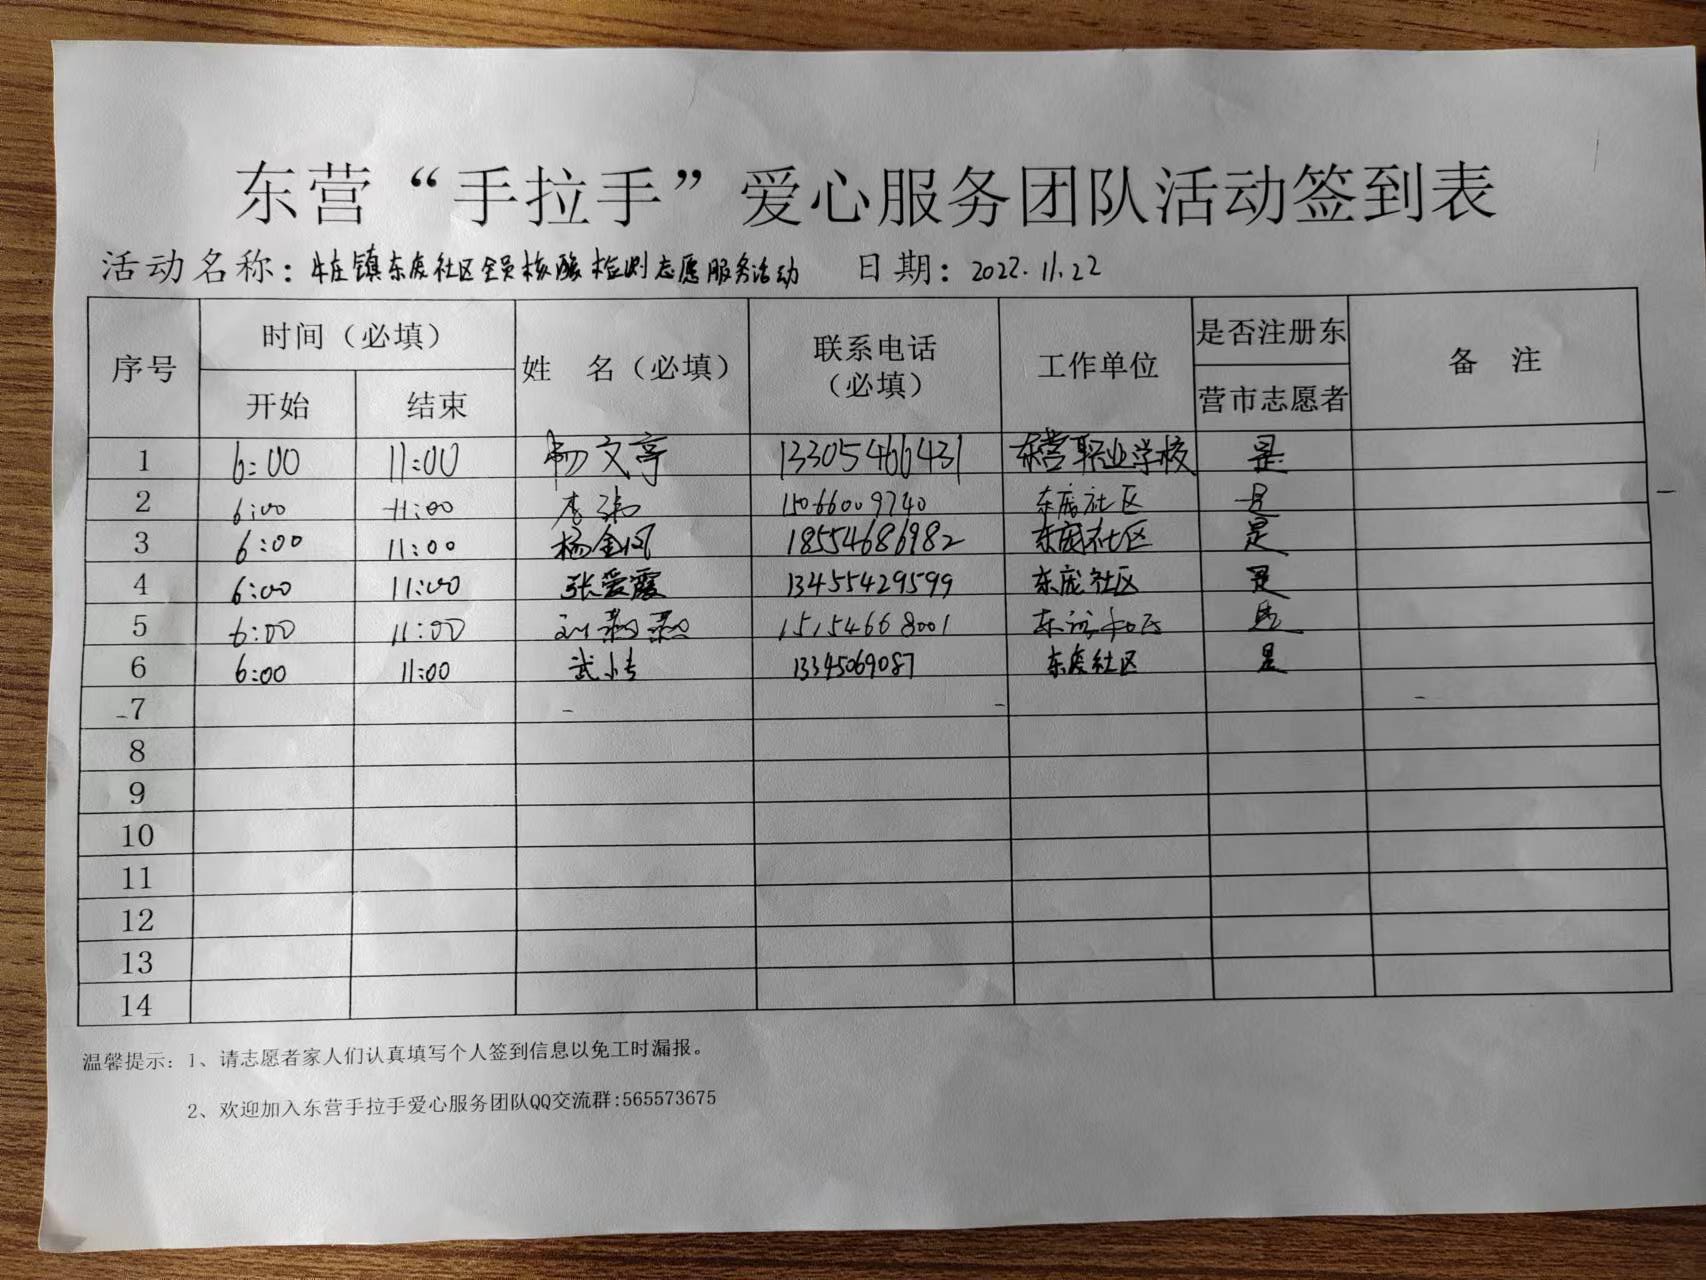 东营“手拉手”爱心服务团队活动签到表
活动名称：牛庄镇东庞社区全员核酸检测志愿服务活动 日期：2022.11.22
序号 时间（必填） 姓 名（必填） 联系电话（必填） 工作单位 是否注册东营市志愿者 备 注
开始 结束
1 6:00 11:00 杨文亭 13305466431 东营职业学校 是
2 6:00 11:00 李 15066009740 东庞社区 是
3 6:00 11:00 杨金凤 18554686982 东庞社区 是
4 6:00 11:00 张爱霞 13455429599 东庞社区 是
5 6:00 11:00 刘 15154668001 东 社区 是
6 6:00 11:00 武 13345069087 东庞社区 是
7
8
9
10
11
12
13
14
温馨提示：1、请志愿者家人们认真填写个人签到信息以免工时漏报。
2、欢迎加入东营手拉手爱心服务团队QQ交流群:565573675